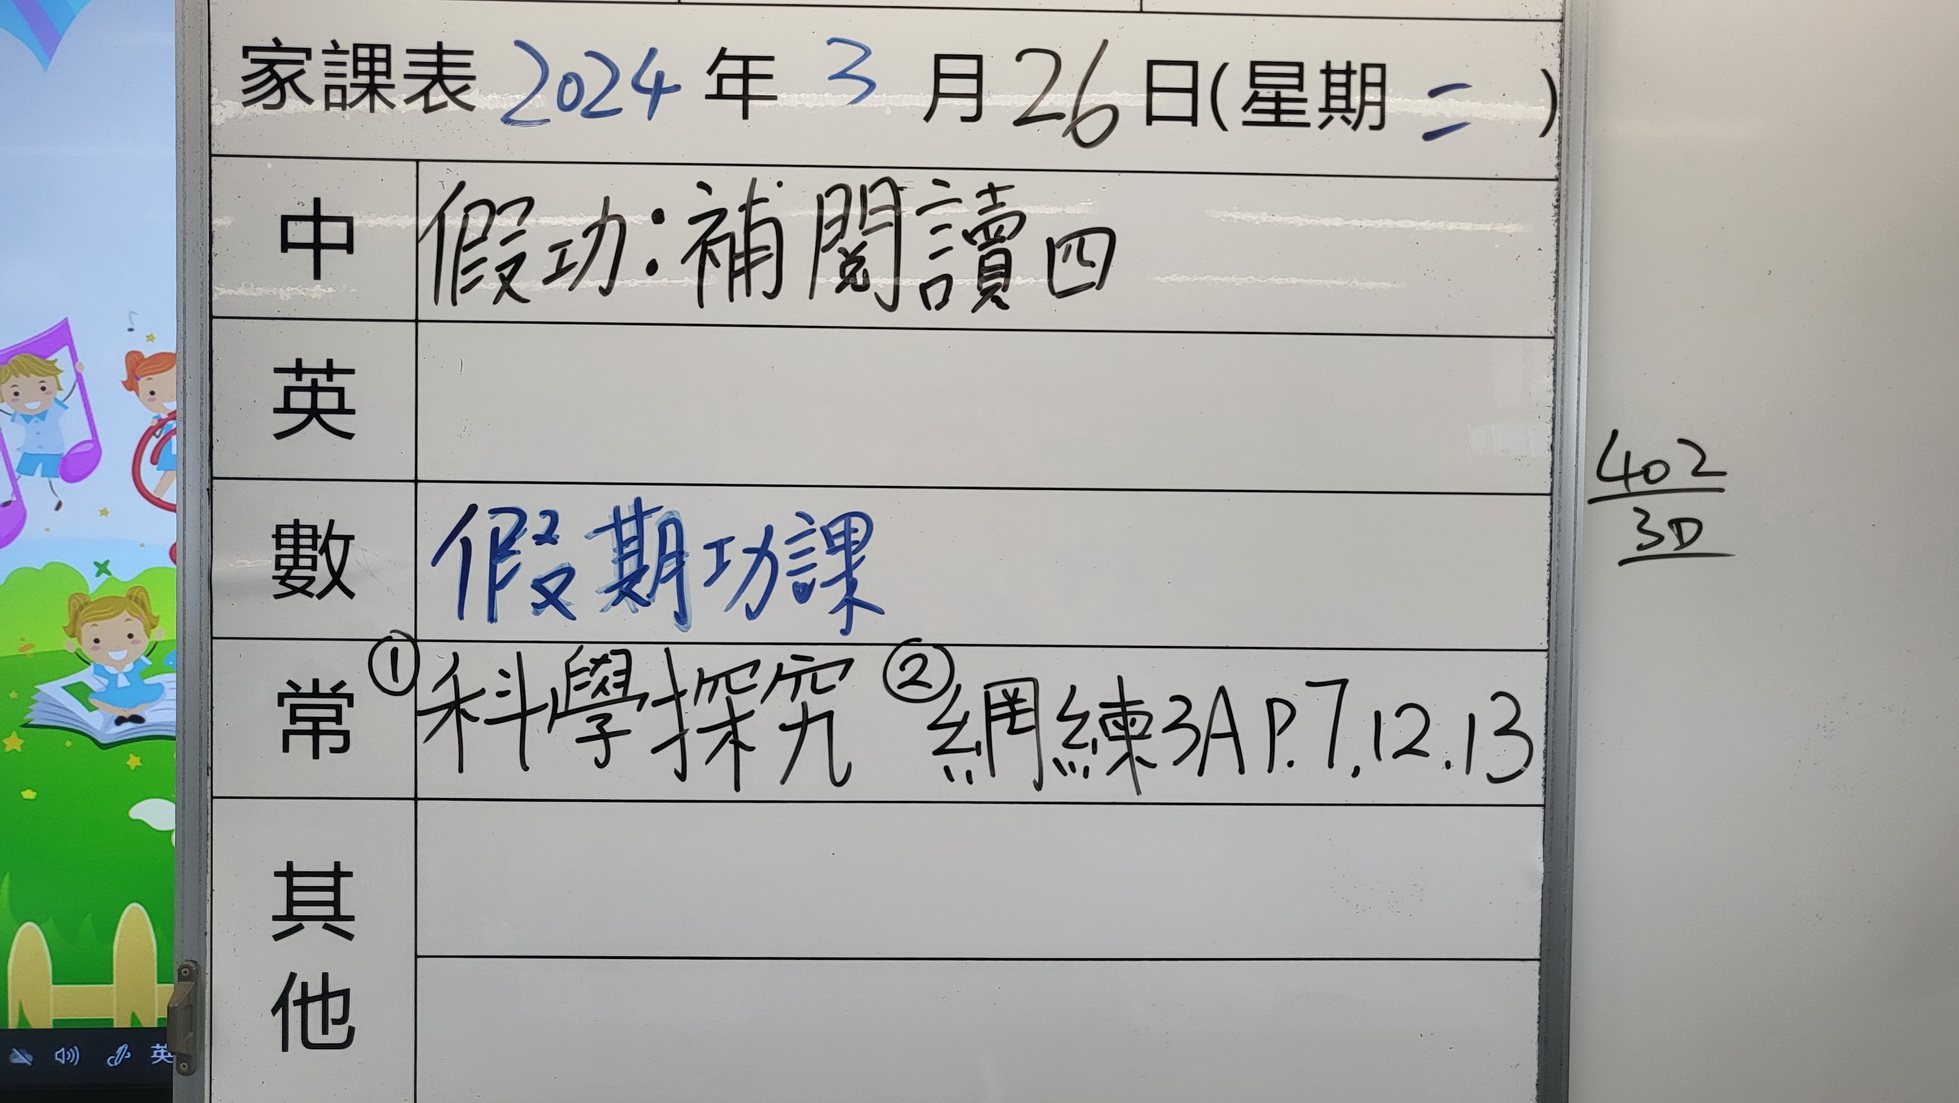 家課表 2024 年 3 月 26 日(星期 二 )
中 假功:補閱讀四
英
數 假期功課
常 ①科學探究 ②網練3A P.7.12.13
其他
402
3D
英